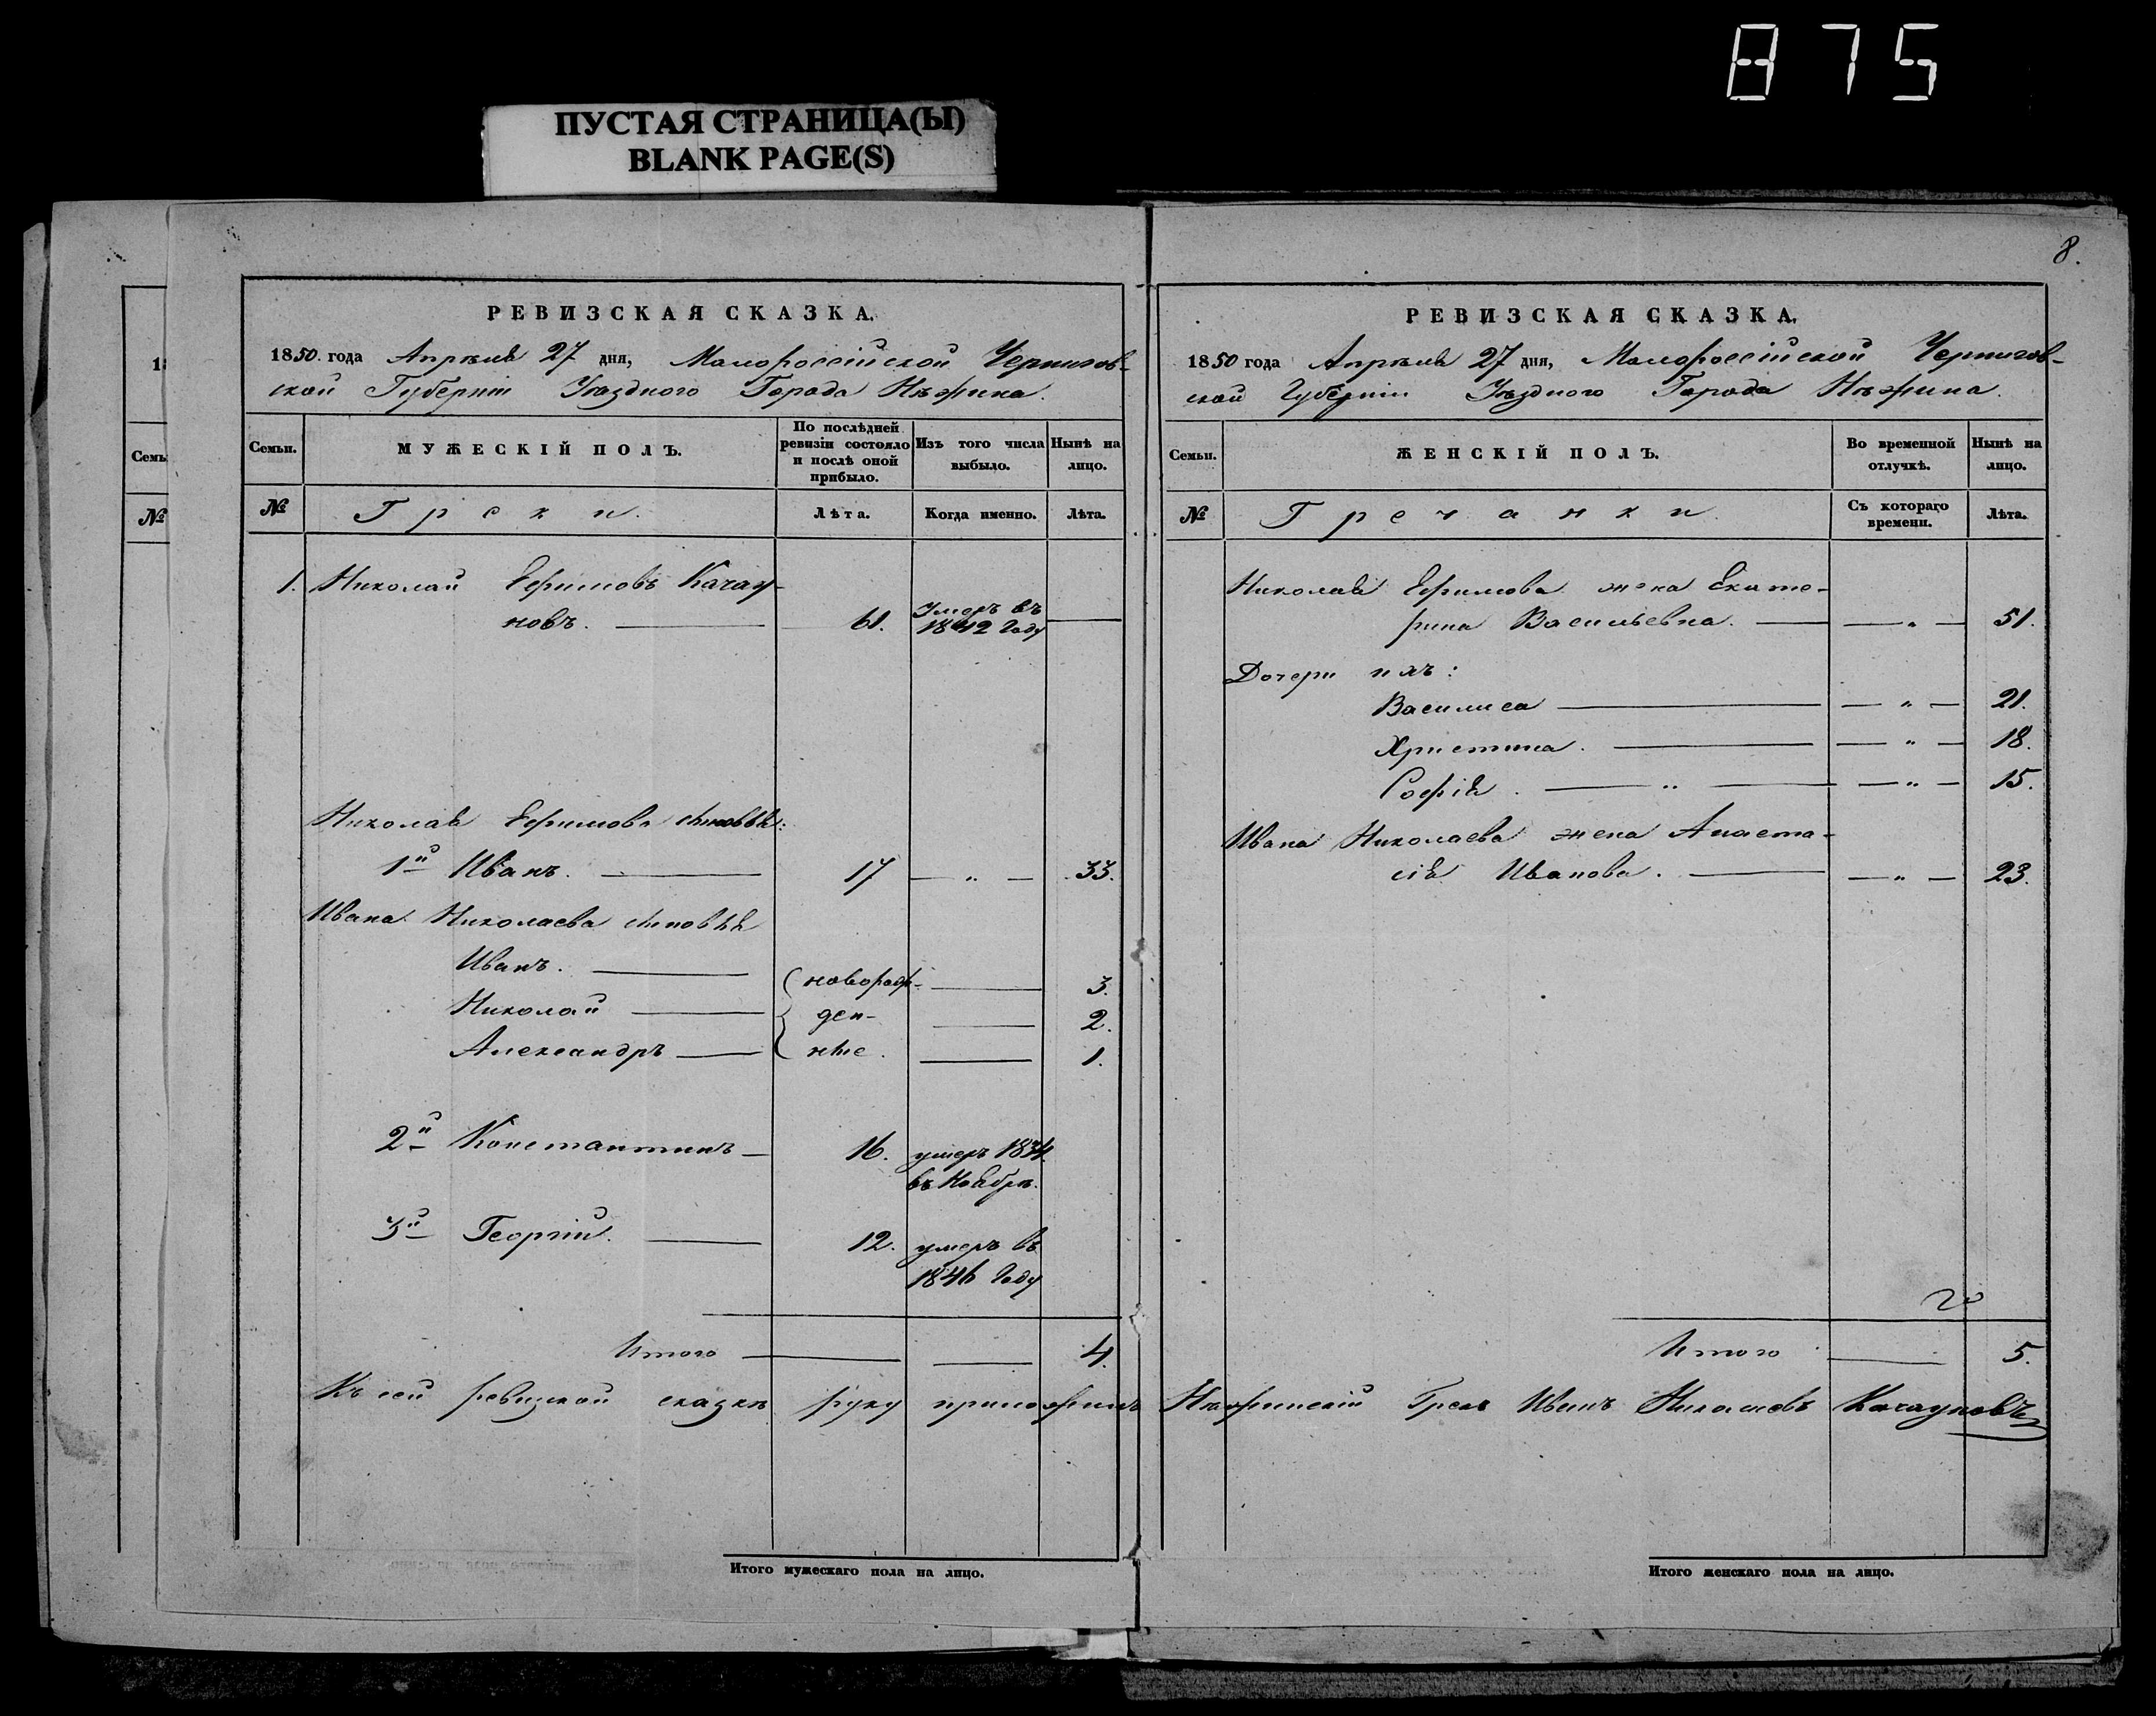 875
ПУСТАЯ СТРАНИЦА(Ы)
BLANK PAGE(S)
Семь
№
РЕВИЗСКАЯ СКАЗКА.
1850. года Апрѣля 27 дня, Малороссійской Чернигов-
ской Губерніи Уѣзднаго Города Нѣжина.
Семьи. МУЖЕСКІЙ ПОЛЪ. По послѣдней ревизіи состояло и послѣ оной прибыло. Изъ того числа выбыло. Нынѣ на лицо.
№ Греки. Лѣта. Когда именно. Лѣта.
1. Николай Ефимовъ Качау-
новъ. 61. Умеръ въ 1842 Году
Николая Ефимова сыновья:
1й Иванъ. 17 " 33.
Ивана Николаева сыновья
Иванъ. новорож- 3.
Николай ден- 2.
Александръ ные. 1.
2й Константинъ 16. умеръ 1834.
въ Ноябрѣ.
3й Георгій. 12. умеръ въ
1846 Году
Итого 4.
Къ сей ревизской сказкѣ руку приложилъ Нѣжинскій Грекъ Иванъ Николаевъ Качауновъ
Итого мужескаго пола на лицо.
8.
РЕВИЗСКАЯ СКАЗКА.
1850 года Апрѣля 27 дня, Малороссійской Чернигов-
ской Губерніи Уѣзднаго Города Нѣжина.
Семьи. ЖЕНСКІЙ ПОЛЪ. Во временной отлучкѣ. Нынѣ на лицо.
№ Гречанки. Съ котораго времени. Лѣта.
Николая Ефимова жена Екате-
рина Васильевна. " 51.
Дочери ихъ:
Василиса " 21.
Христина. " 18.
Софія. " " 15.
Ивана Николаева жена Анаста-
сія Иванова. " 23.
Итого 5.
Итого женскаго пола на лицо.